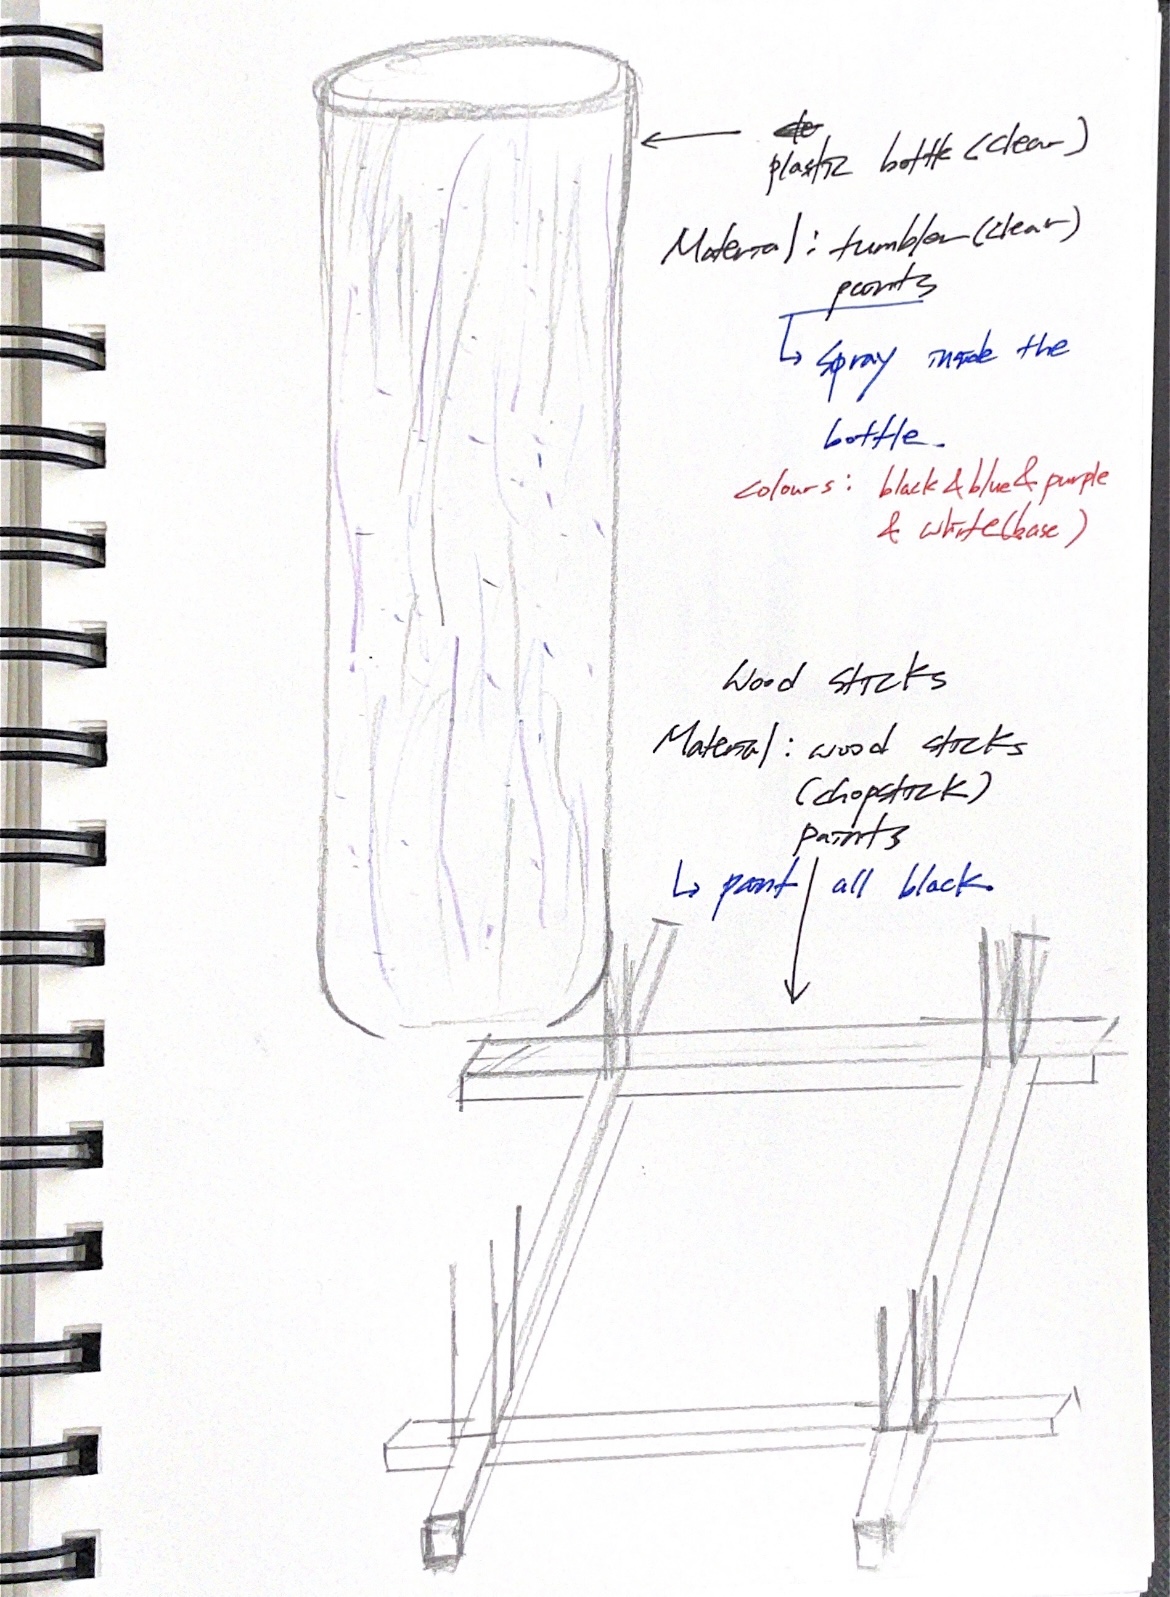 plastic bottle (clear)
Material : tumbler (clear)
paints
↳ spray inside the
bottle.
colours : black & blue & purple
& white (base)
Wood sticks
Material : wood sticks
(chopstick)
paints
↳ paint all black.